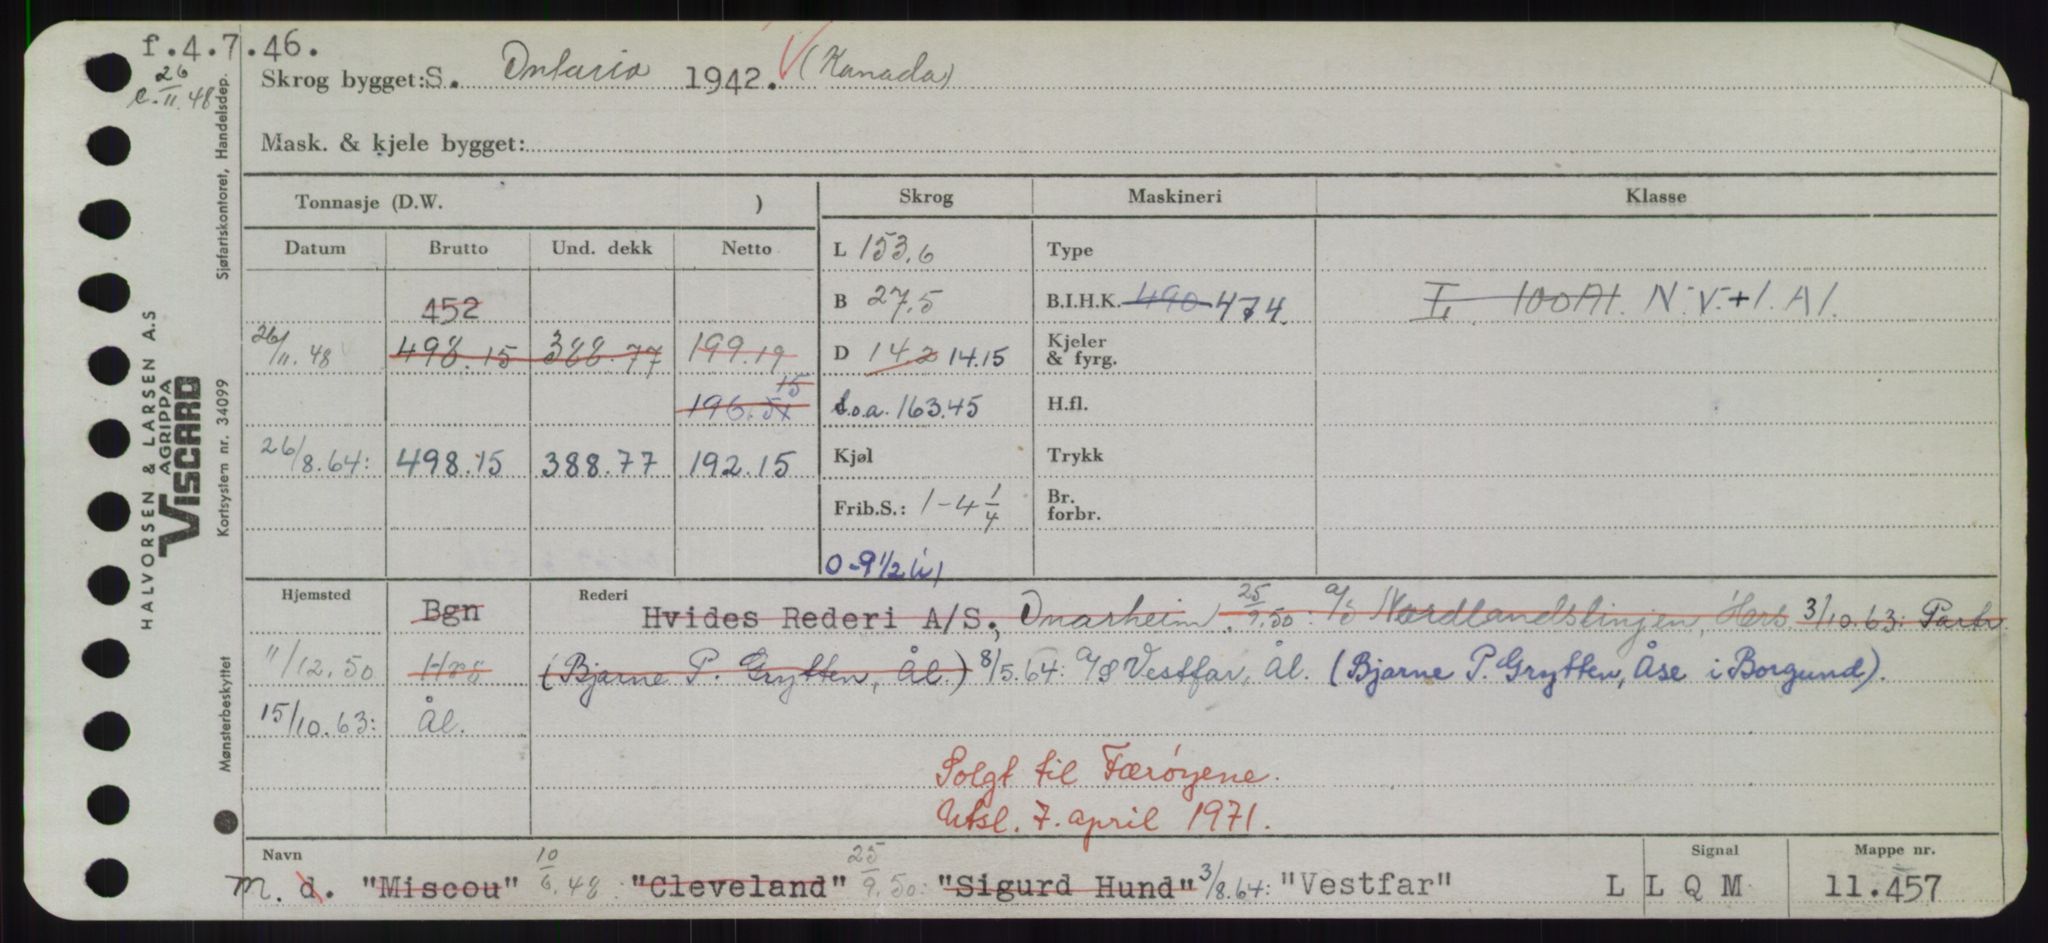 f.4.7.46.
26/11.48
Skrog bygget: S. Ontario 1942. (Kanada)
Mask. & kjele bygget:
Tonnasje (D.W. )
Skrog Maskineri Klasse
Datum Brutto Und. dekk Netto
L 153,6 Type
452
B 27,5 B.I.H.K. 490 474. I. 100A1. N.V. + 1.A1.
26/11.48 498.15 388.77 199.19
D 14.2 14.15 Kjeler & fyrg.
196.51 15
L.o.a. 163.45 H.fl.
26/8.64: 498.15 388.77 192.15
Kjøl Trykk
Frib.S.: 1-4 1/4 Br. forbr.
0-9 1/2 (i)
Hjemsted Bgn Rederi Hvides Rederi A/S., Onarheim. 25/9.50: A/S Nordlandslinjen, Hers. 3/10.63: Partr.
11/12.50 Hrs (Bjarne P. Grytten, Ål.) 8/5.64: A/S Vestfar, Ål. (Bjarne P. Grytten, Åse i Borgund).
15/10.63: Ål.
Solgt til Færøyene.
Utsl. 7. april 1971.
Navn Signal Mappe nr.
M. d. "Miscou" 10/6.48: "Cleveland" 25/9.50: "Sigurd Hund" 3/8.64: "Vestfar" L L Q M 11.457
HALVORSEN & LARSEN A.S
AGRIPPA
VISCARD
Sjøfartskontoret, Handelsdep.
Kortsystem nr. 34099
Mønsterbeskyttet